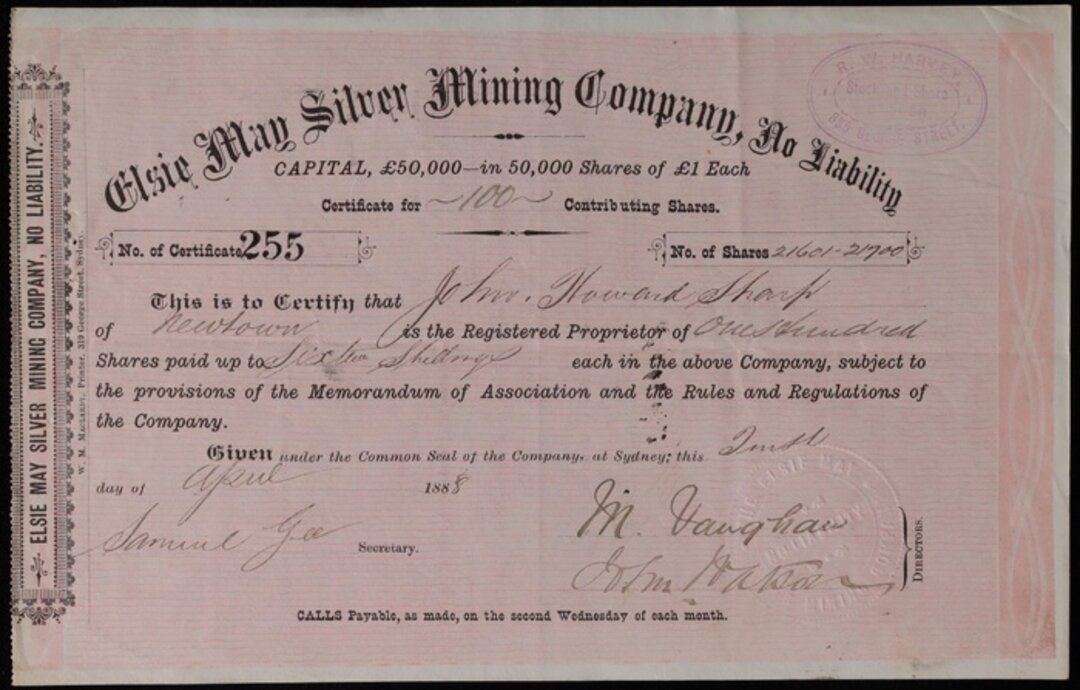 Elsie May Silver Mining Company, No Liability
R. W. HARVEY,
Stock and Share
STREET.
CAPITAL, £50,000—in 50,000 Shares of £1 Each
Certificate for ~100~ Contributing Shares.
No. of Certificate 255
No. of Shares 21601-21700
This is to Certify that John Howard Sharp
of Newtown is the Registered Proprietor of One Hundred
Shares paid up to Shillings each in the above Company, subject to
the provisions of the Memorandum of Association and the Rules and Regulations of
the Company.
Given under the Common Seal of the Company, at Sydney, this
day of April 1888
Samuel Gee Secretary.
M. Vaughan
John Watson
DIRECTORS.
CALLS Payable, as made, on the second Wednesday of each month.
ELSIE MAY SILVER MINING COMPANY, NO LIABILITY.
W. M. Maclardy, Printer, 319 George Street, Sydney.